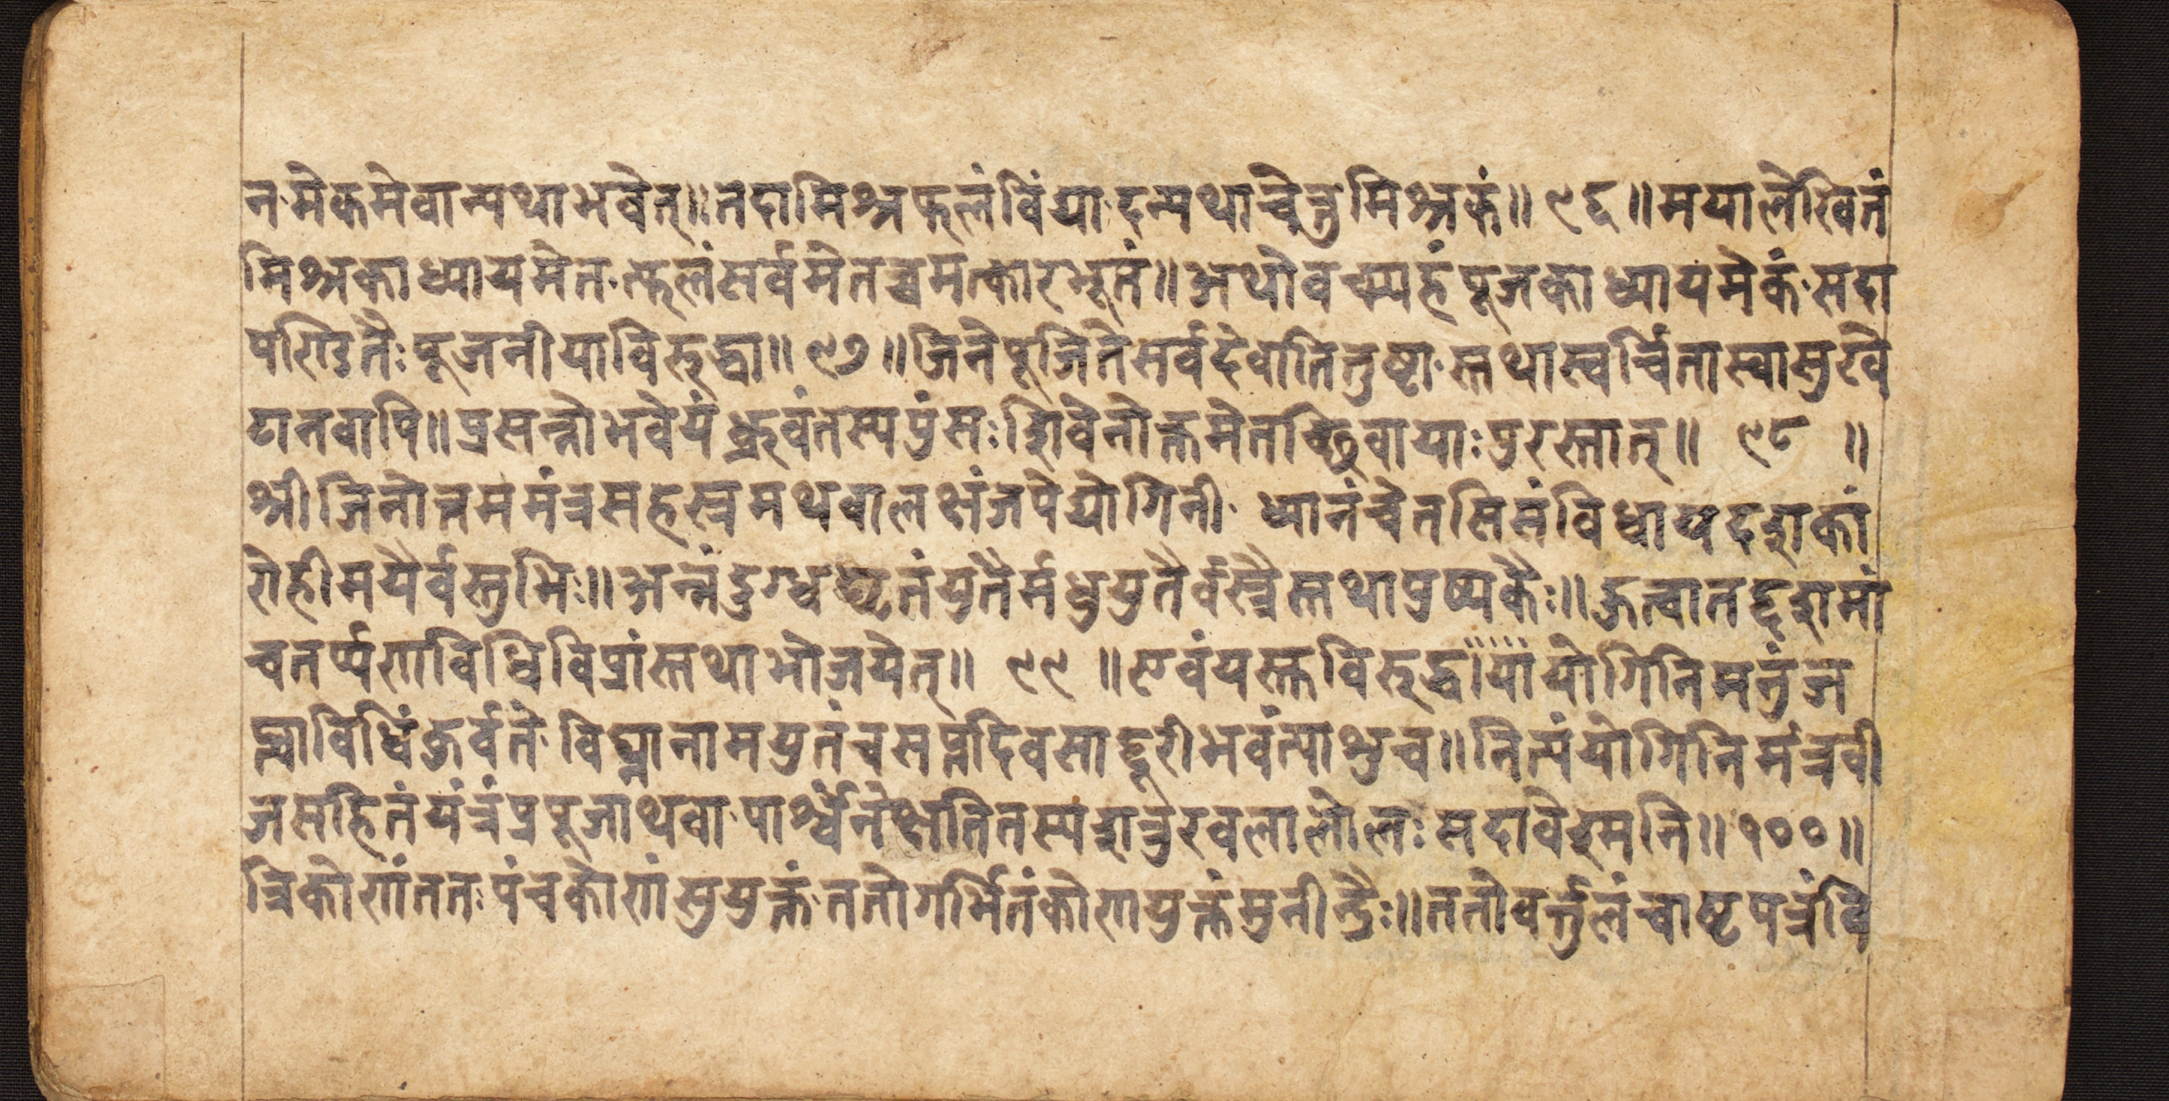 न मेकमेवान्यथाभवेत्॥तदामिश्रफलंविंद्यादन्यथाचेत्तुमिश्रकं॥९६॥मयालेखितं
मिश्रकाध्यायमेतत्फलंसर्वमेतच्चमत्कारभूतं॥अथोवच्म्यहंपूजकाध्यायमेकंसदा
पण्डितैःपूजनीयाविरुद्धा॥९७॥जिनेपूजितेसर्वदेवातितुष्टास्तथास्वर्चितास्वासुखे
टानवापि॥प्रसन्नोभवेयंध्रुवंतस्यपुंसःशिवेनोक्तमेतच्छिवायाःपुरस्तात्॥९८॥
श्रीजिनोत्तममंत्रसहस्त्रमथवालक्षंजपेद्योगिनी ध्यानंचेतसिसंविधायदशकां
रोहीमयैर्वस्तुभिः॥अन्नंदुग्धघृतंयुतैर्मधुयुतैर्वस्त्रैस्तथापुष्पकैः॥कृत्वातद्दशमां
चतर्प्पणविधिविप्रांस्तथाभोजयेत्॥९९॥एवंयस्तुविरुद्धायांयोगिनिमनुंज
प्त्वाविधिंकुर्वते विघ्नानामयुतंचसप्तदिवसाद्दूरीभवंत्याशुच॥नित्यंयोगिनिमंत्रवी
जसहितंयंत्रंप्रपूजाथवा पार्श्वेनेक्षतितस्यशत्रुरबलालोलःसदावेश्मनि॥१००॥
त्रिकोणंततःपंचकोणंसुयुक्तंततोगर्भितंकोणयुक्तंमुनीन्द्रैः॥ततोवर्तुलंचाष्टपत्रंवि